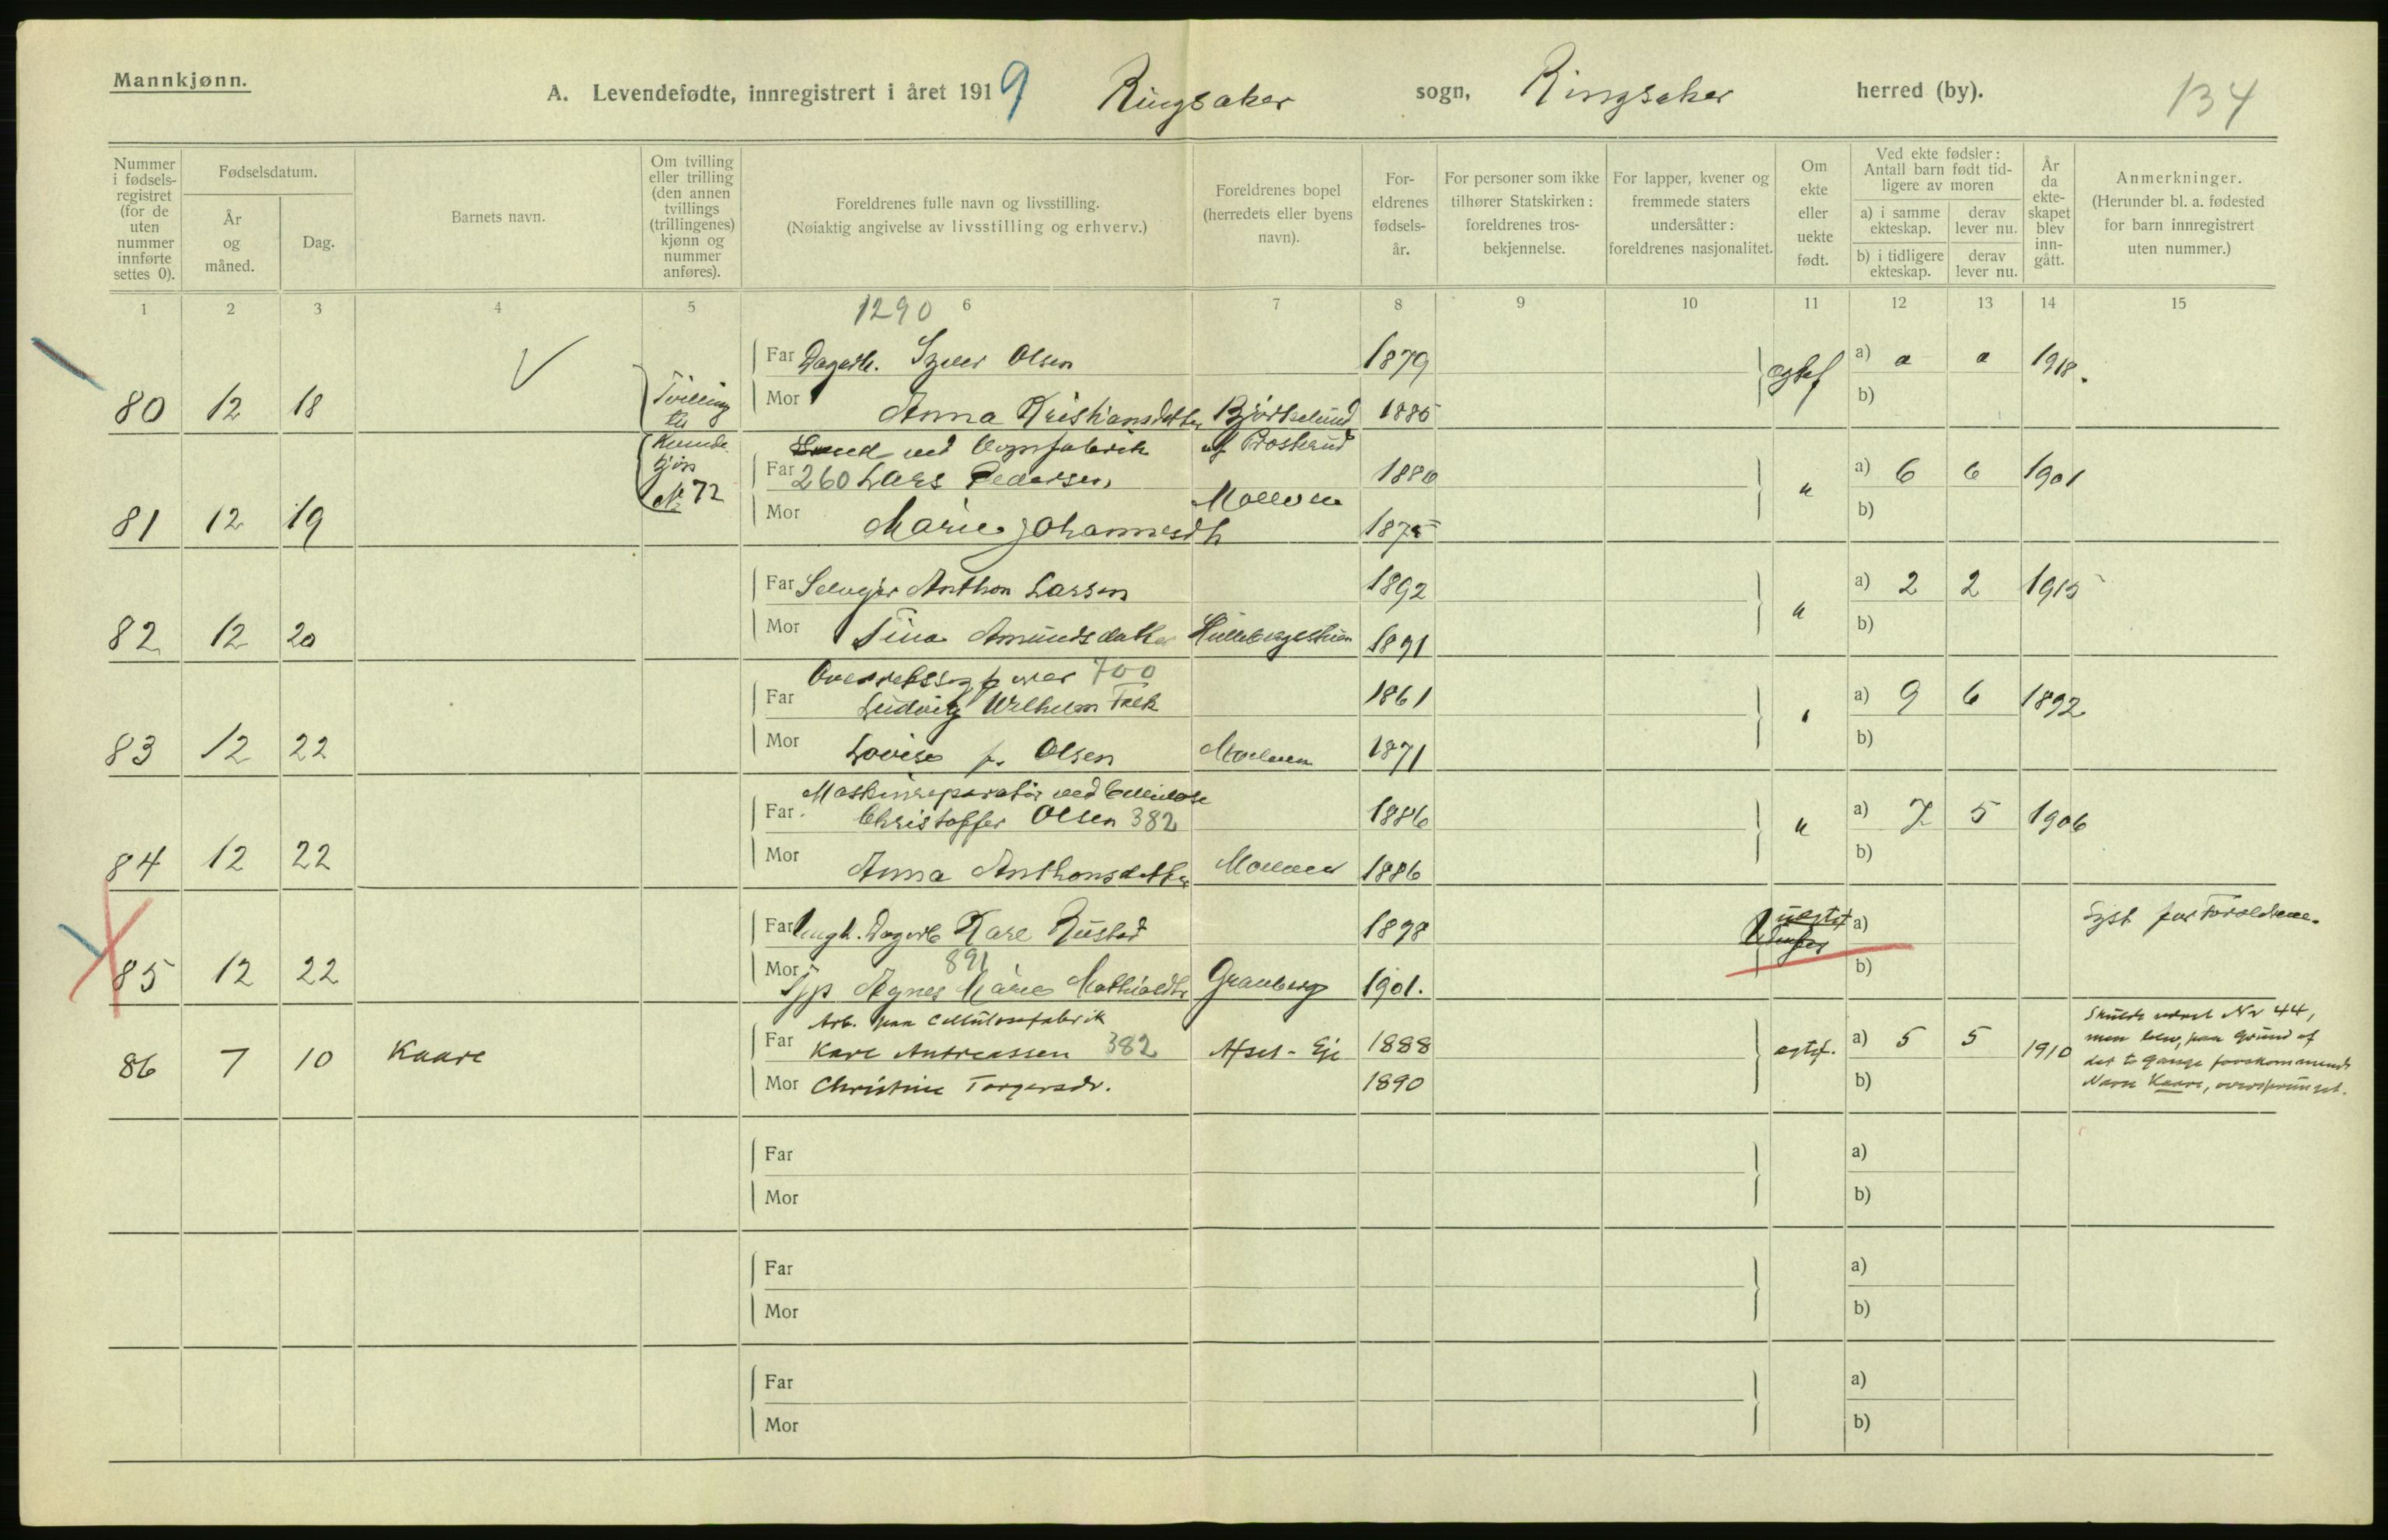 Mannkjønn.
A. Levendefødte, innregistrert i året 1919 Ringsaker sogn, Ringsaker herred (by). 134
Nummer i fødsels-registret (for de uten nummer innførte settes 0).
Fødselsdatum.
År og måned.
Dag.
Barnets navn.
Om tvilling eller trilling (den annen tvillings (trillingenes) kjønn og nummer anføres).
Foreldrenes fulle navn og livsstilling.
(Nøiaktig angivelse av livsstilling og erhverv.)
Foreldrenes bopel (herredets eller byens navn).
For-eldrenes fødsels-år.
For personer som ikke tilhører Statskirken: foreldrenes tros-bekjennelse.
For lapper, kvener og fremmede staters undersåtter: foreldrenes nasjonalitet.
Om ekte eller uekte født.
Ved ekte fødsler: Antall barn født tid-ligere av moren
a) i samme ekteskap. derav lever nu.
b) i tidligere ekteskap. derav lever nu.
År da ekte-skapet blev inn-gått.
Anmerkninger.
(Herunder bl. a. fødested for barn innregistrert uten nummer.)
1 2 3 4 5 6 7 8 9 10 11 12 13 14 15
1290
Far Dagarb. Syver Olsen 1879 a) 0 0 1918.
80 12 18 Tvilling
Mor Anna Kristiansdatter 1885 b)
Kvinde
kjøn
№ 72
ved Vognfabrik
Far 260 Lars Pedersen 1880 " a) 6 6 1901
81 12 19
Mor Marie Johannesdt 1875 b)
Far Selvejer Anthon Larsen 1892 " a) 2 2 1915
82 12 20
Mor Tina Amundsdatter 1891 b)
700
Far Ludvig Wilhelm Falk 1861 a) 9 6 1892
83 12 22
Mor Lovise f. Olsen Moelven 1871 b)
Maskinreparatør ved Cellulose
Far Christoffer Olsen 382 1886 " a) 7 5 1906
84 12 22
Mor Anna Anthonsdatter Moelven 1886 b)
Far Ungk. Dagarb Karl Rustad 1898 uegte a) Lyst for Forældrene.
891
85 12 22
Mor Agnes Marie Mathiasdtr Granberg 1901. b)
Arb. paa Cellulosefabrik
Far Karl Andreassen 382 Afset-Eje 1888 egtef. a) 5 5 1910
86 7 10 Kaare
Mor Christine Torgersdr. 1890 b)
Skulde været Nr 44,
men blev, paa Grund af
det to Gange forekommende
Navn Kaare, oversprunget.
Far a)
Mor b)
Far a)
Mor b)
Far a)
Mor b)